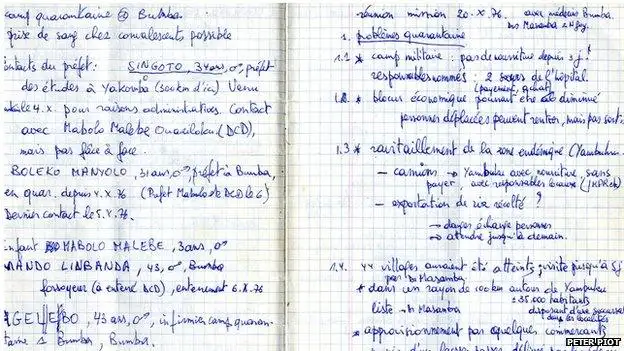 camp quarantaine @ Bumba.
prise de sang chez convalescents possible
contacts du préfet: SINGOTO, 34 ans, ♂, préfet
des études à Yakoma (500km d'ici) Venu
le 4.X. pour raisons administratives. Contact
avec Mabolo Malebe (DCD),
mais pas face à face.
BOLEKO MANYOLO, 31 ans, ♂, préfet à Bumba,
en quar. depuis 4.X.76 (Préfet Mabolo DCD le 6)
Dernier contact le 5.X.76.
enfant MABOLO MALEBE, 3 ans, ♂
MANDO LINBANDA, 43, ♂, Bumba
fossoyeur (a enterré DCD), enterrement 6.X.76
43 ans, ♂, infirmier camp quaran-
taine Bumba, Bumba.
réunion mission 20.X.76. avec médecins Bumba.
Drs Masamba & Ngoy.
1. problèmes quarantaine
1.1 * camp militaire : pas de nourriture depuis 3 j!
responsables nommés : 2 soeurs de l'hôpital.
(payement, achat)
1.2. * blocus économique pourrait être diminué
personnes déplacées peuvent rentrer, mais pas sortir.
1.3 * ravitaillement de la zone endémique (Yambuku
- camions → Yambuku avec nourriture, sans
payer, avec responsables locaux (JMPR etc)
- exportation de riz récolté ?
→ danger échange personnes
→ attendre jusqu'à demain.
1.4. 44 villages auraient été atteints; visite jusqu'à 5j
par Dr Masamba
* dans un rayon de 100 km autour de Yambuku
± 35.000 habitants
liste → Dr Masamba disposant d'une succursale
dans les localités
* approvisionnement par quelques commerçants
PETER PIOT